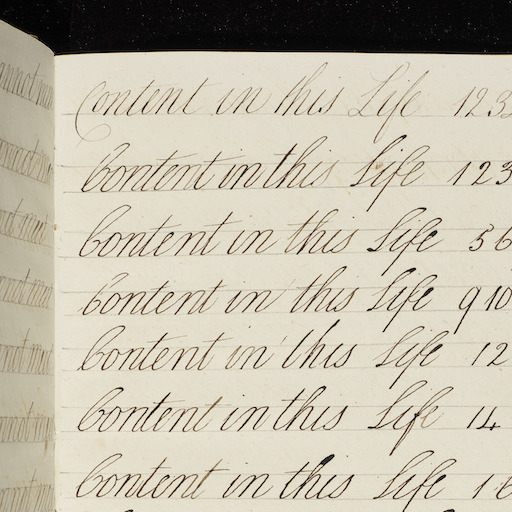 Content in this Life 123
Content in this Life 123
Content in this Life 56
Content in this Life 910
Content in this Life 12
Content in this Life 14
Content in this Life 16